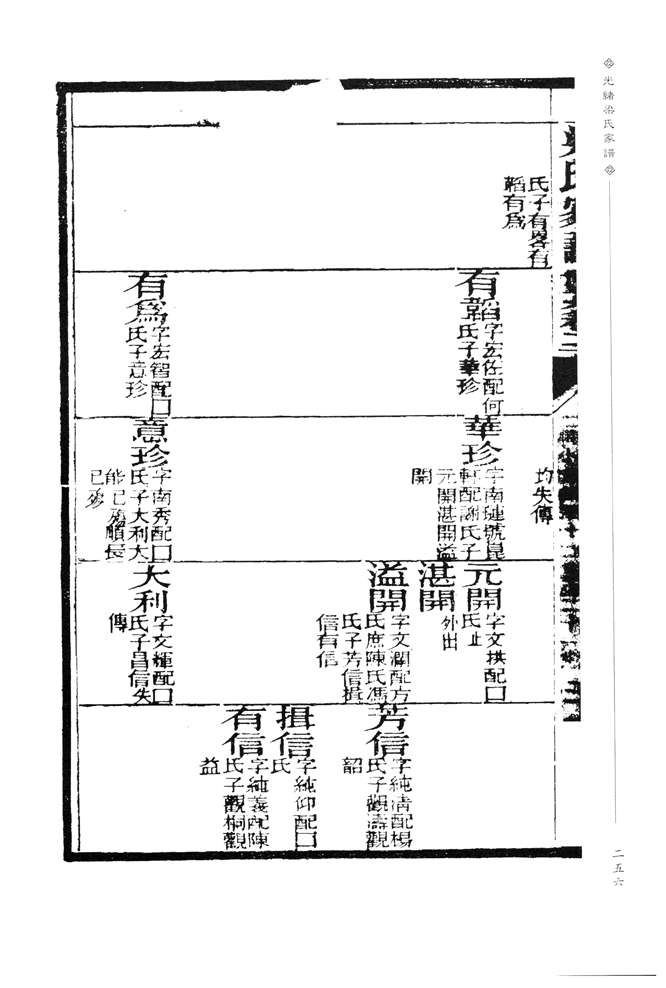 光緒梁氏家譜
二五六
氏子有畧有
韜有爲
有韜
字宏佐配何
氏子華珍
有爲
字宏智配口
氏子意珍
均失傳
華珍
字南璉號崑
軒配謝氏子
元開湛開溢
開
意珍
字南秀配口
氏子大利大
能已殤順長
已殤
元開
字文拱配口
氏止
湛開
外出
溢開
字文瀾配方
氏庶陳氏馮
氏子芳信揖
信有信
大利
字文輝配口
氏子昌信失
傳
芳信
字純清配楊
氏子觀濤觀
韶
揖信
字純仰配口
氏
有信
字純義配陳
氏子觀桐觀
益